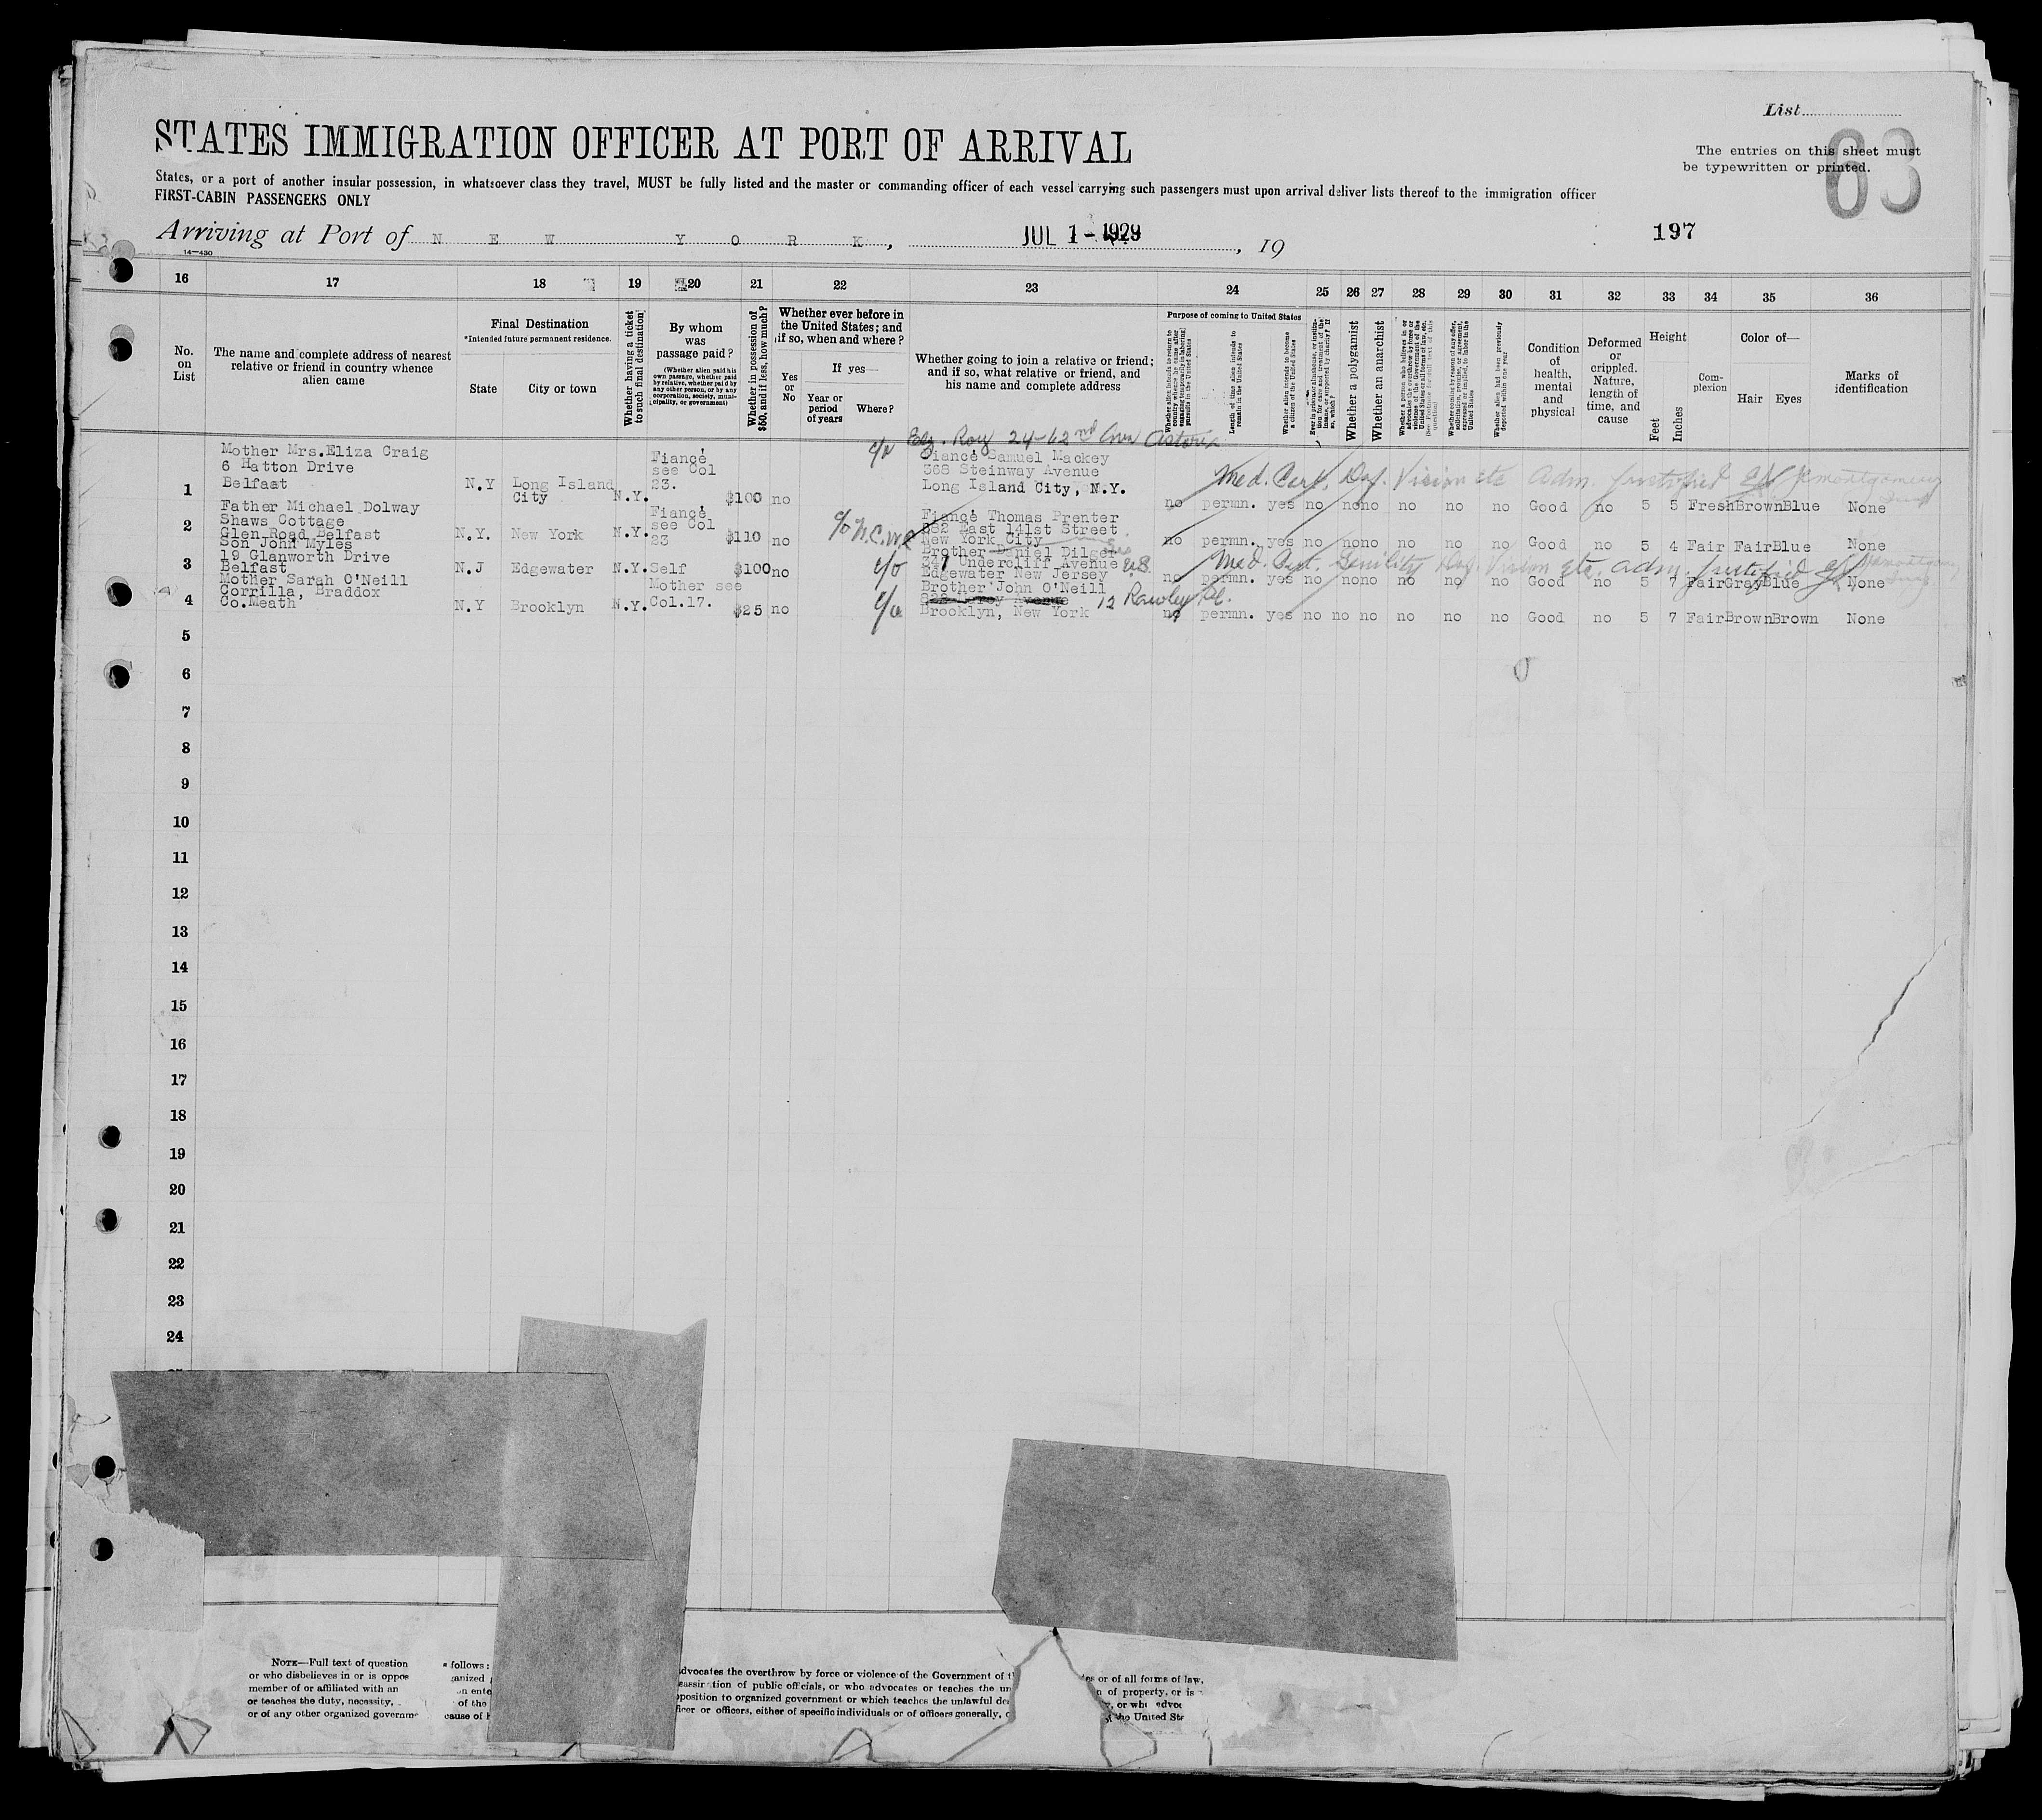 List
STATES IMMIGRATION OFFICER AT PORT OF ARRIVAL
The entries on this sheet must
be typewritten or printed.
63
States, or a port of another insular possession, in whatsoever class they travel, MUST be fully listed and the master or commanding officer of each vessel carrying such passengers must upon arrival deliver lists thereof to the immigration officer
FIRST-CABIN PASSENGERS ONLY
Arriving at Port of N E W Y O R K, JUL 1 - 1929, 19
197
14-430
16 17 18 19 20 21 22 23 24 25 26 27 28 29 30 31 32 33 34 35 36
No. on List
The name and complete address of nearest relative or friend in country whence alien came
Final Destination
*Intended future permanent residence.
State
City or town
Whether having a ticket to such final destination
By whom was passage paid?
(Whether alien paid his own passage, whether paid by relative, whether paid by any other person, or by any corporation, society, municipality, or government)
Whether in possession of $50, and if less, how much?
Whether ever before in the United States; and if so, when and where?
Yes or No
If yes—
Year or period of years
Where?
Whether going to join a relative or friend; and if so, what relative or friend, and his name and complete address
Purpose of coming to United States
Whether alien intends to return to country whence he came after engaging temporarily in laboring pursuits in the United States
Length of time alien intends to remain in the United States
Whether alien intends to become a citizen of the United States
Ever in prison or almshouse, or institution for care and treatment of the insane, or supported by charity? If so, which?
Whether a polygamist
Whether an anarchist
Whether coming by reason of any offer, solicitation, promise, or agreement, expressed or implied, to labor in the United States
Whether alien had been previously deported within one year
Condition of health, mental and physical
Deformed or crippled. Nature, length of time, and cause
Height
Feet
Inches
Complexion
Color of—
Hair Eyes
Marks of identification
24-62nd Astoria
1 Mother Mrs.Eliza Craig
6 Hatton Drive
Belfast
N.Y Long Island City N.Y. Fiancé see Col 23. $100 no c/o Fiancé Samuel Mackey
368 Steinway Avenue
Long Island City, N.Y.
Med. Cert. Def. Vision etc Adm. justified
no permn. yes no no no no no no Good no 5 5 Fresh Brown Blue None
2 Father Michael Dolway
Shaws Cottage
Glen Road Belfast
N.Y. New York N.Y. Fiancé see Col 23 $110 no c/o Fiancé Thomas Prenter
882 East 141st Street
New York City
no permn. yes no no no no no no Good no 5 4 Fair Fair Blue None
3 Son John Myles
19 Glanworth Drive
Belfast
N.J Edgewater N.Y. Self $100 no c/o Brother Daniel Dilger
347 Undercliff Avenue
Edgewater New Jersey
Med. Cert. Senility Def. Vision etc. adm. justified
no permn. yes no no no no no no Good no 5 7 Fair Gray Blue None
4 Mother Sarah O'Neill
Corrilla, Braddox
Co.Meath
N.Y Brooklyn N.Y. Mother see Col.17. $25 no c/o Brother John O'Neill
12 Rawley Pl.
Brooklyn, New York
no permn. yes no no no no no no Good no 5 7 Fair Brown Brown None
5
6
7
8
9
10
11
12
13
14
15
16
17
18
19
20
21
22
23
24
NOTE—Full text of question follows: advocates the overthrow by force or violence of the Government of or of all forms of law,
or who disbelieves in or is of public officials, or who advocates or teaches the of property, or is
member of or affiliated with an opposition to organized government or which teaches the unlawful
or teaches the duty, necessity, of the officer or officers, either of specific individuals or of officers generally, the United
or of any other organized cause of